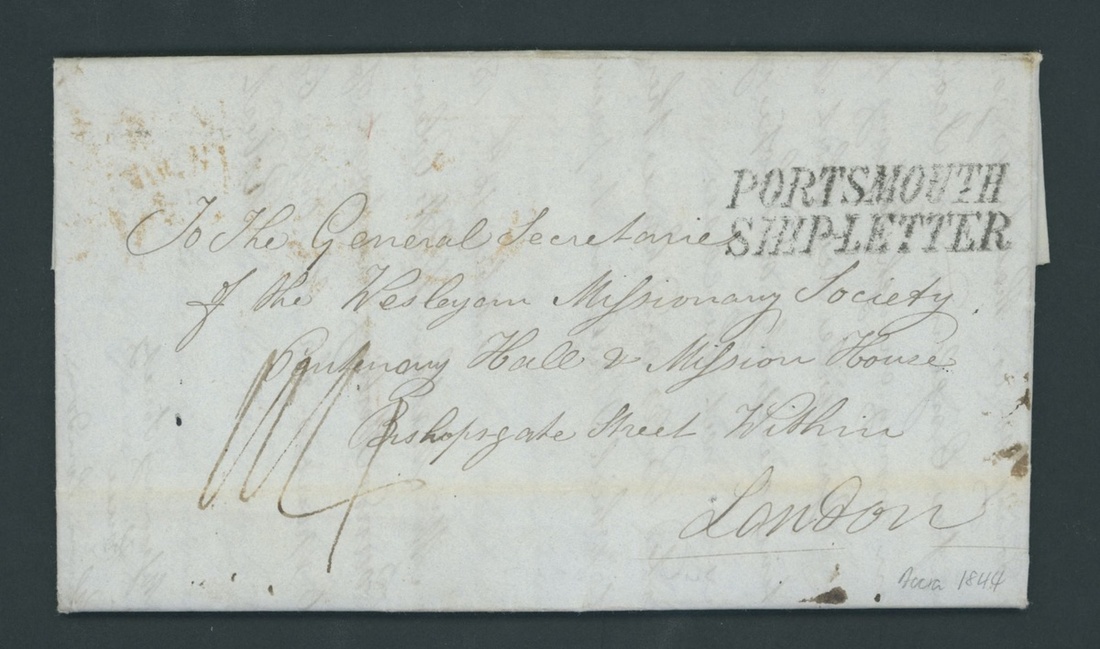 PORTSMOUTH
SHIP-LETTER
To The General Secretaries
of the Wesleyan Missionary Society
Centenary Hall & Mission House
Bishopsgate Street Within
London
Accra 1844